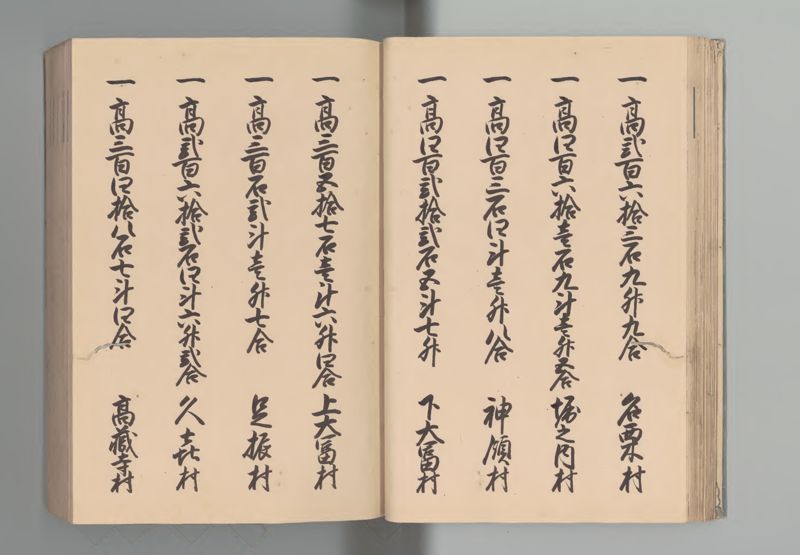 一高弐百六拾三石九升九合 名栗村
一高四百六拾壱石九斗壱升五合 堀之内村
一高四百三石四斗壱升八合 神領村
一高四百弐拾弐石五斗七升 下大冨村
一高三百五拾七石壱斗六升四合 上大冨村
一高三百石弐斗壱升七合 足振村
一高弐百六拾弐石四斗六升弐合 久々㐂村
一高三百四拾八石七斗四合 高蔵寺村